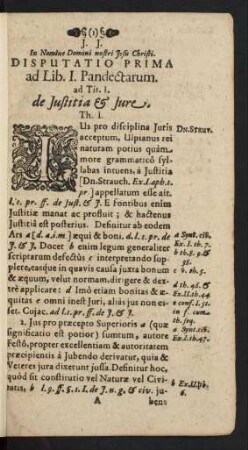 J. J.
In Nomine Domini nostri Jesu Christi.
DISPUTATIO PRIMA
ad Lib. I. Pandectarum.
ad Tit. I.
de Justitia & Jure.
Th. I.
IUs pro disciplina Juris
acceptum, Ulpianus rei
naturam potius quàm
more grammaticô syl-
labas intuens, à Justitia
[Dn. Strauch. Ex. 1. aph. 1.
pr.] appellatum esse ait.
l. 1. pr. ff. de Just. & J. E fontibus enim
Justitiæ manat ac profluit; & hactenus
Justitiâ est posterius. Definitur ab eodem
Ars a [d. a. in m] æqui & boni. d. l. 1. pr. de
J. & J. Docet b enim legum generaliter
scriptarum defectus c interpretando sup-
plere, tasque in quavis causa juxta bonum
& æquum, velut normam, dirigere & dex-
trè applicare: d Imò etiam bonitas & æ-
quitas e omni inest Juri, aliàs jus non es-
set. Cujac. ad l. 1. pr. ff. de J. & J.
2. Jus pro præcepto Superioris a (quæ
significatio est potior) sumtum, autore
Festô, propter excellentiam & autoritatem
præcipientis à Jubendo derivatur, quia &
Veteres jura dixerunt jussa. Definitur hoc,
quòd sit constitutio vel Naturæ vel Civi-
tatis, b l. 9. ff. §. 1. I. de J. n. g. & civ. ju-
A
bens
DN. STRUV.
a Synt. cit.
Ex. 1. th. 7.
b th. 8. 9 &
c th. 5.
d th. 48. &
Ex. II. th. 44
a Synt. cit.
Ex. I. th. 47.
b Ex. II. th.
6.